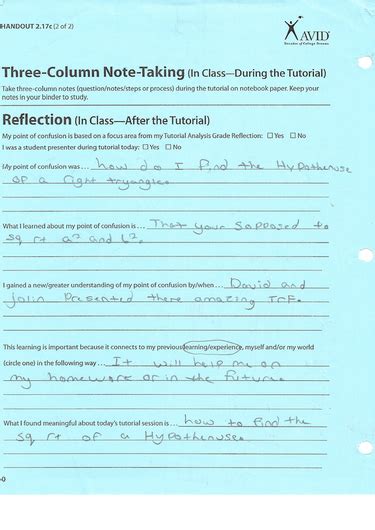 HANDOUT 2.17c (2 of 2)
AVID
Decades of College Dreams
Three-Column Note-Taking (In Class—During the Tutorial)
Take three-column notes (question/notes/steps or process) during the tutorial on notebook paper. Keep your
notes in your binder to study.
Reflection (In Class—After the Tutorial)
My point of confusion is based on a focus area from my Tutorial Analysis Grade Reflection: □ Yes □ No
I was a student presenter during tutorial today: □ Yes □ No
My point of confusion was... how do I find the Hypothenuse
of a right tryangle.
What I learned about my point of confusion is... That your sopposed to
sq rt a² and b².
I gained a new/greater understanding of my point of confusion by/when... David and
Presented there amazing TRF.
This learning is important because it connects to my previous learning/experience, myself and/or my world
(circle one) in the following way... It will help me on
my homework or in the future.
What I found meaningful about today's tutorial session is... how to find the
sq rt of a Hypothenuse.